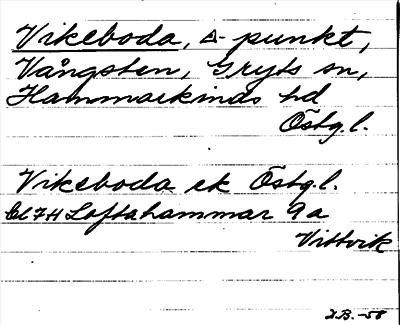 Vikeboda, △-punkt,
Vångsten, Gryts sn,
Hammarkinds hd
Östg.l.
Vikeboda ek Östg.l.
bl 7H Loftahammar 9a
Vittvik
-58